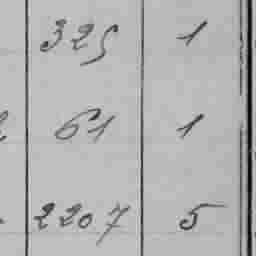 325 1
61 1
2207 5